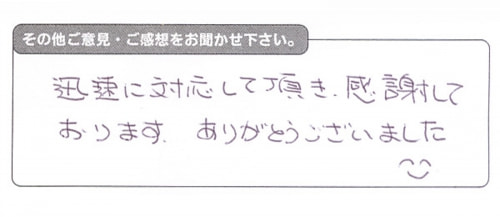 その他ご意見・ご感想をお聞かせ下さい。
迅速に対応して頂き、感謝して
おります。ありがとうございました